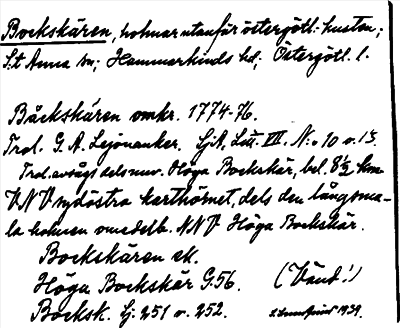 Bockskären, holmar utanför östergötl. kusten;
S:t Anna sn; Hammarkinds hd; Östergötl. l.
Båckskären omkr. 1774-76.
Trol. G. A. Lejonanker. SjA, Litt. VII. N:o 10 o. 15.
Trol. avsågs dels nuv. Höga Bockskär, bel. 8½ km
VNV sydöstra karthörnet, dels den långsma-
la holmen omedelb. NNV Höga Bockskär.
Bockskären ek.
Höga Bockskär G.56. (Vänd!)
Bocksk. Sj: 251 o. 252. 1939.